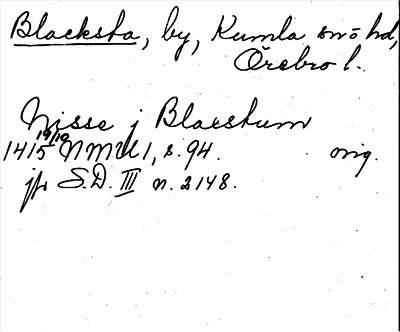 Blacksta, by, Kumla snö hd,
Örebro l.
Nisse j Blacstum
1415 19/10 NMU 1, s. 94. orig.
jfr S.D. III n. 2148.